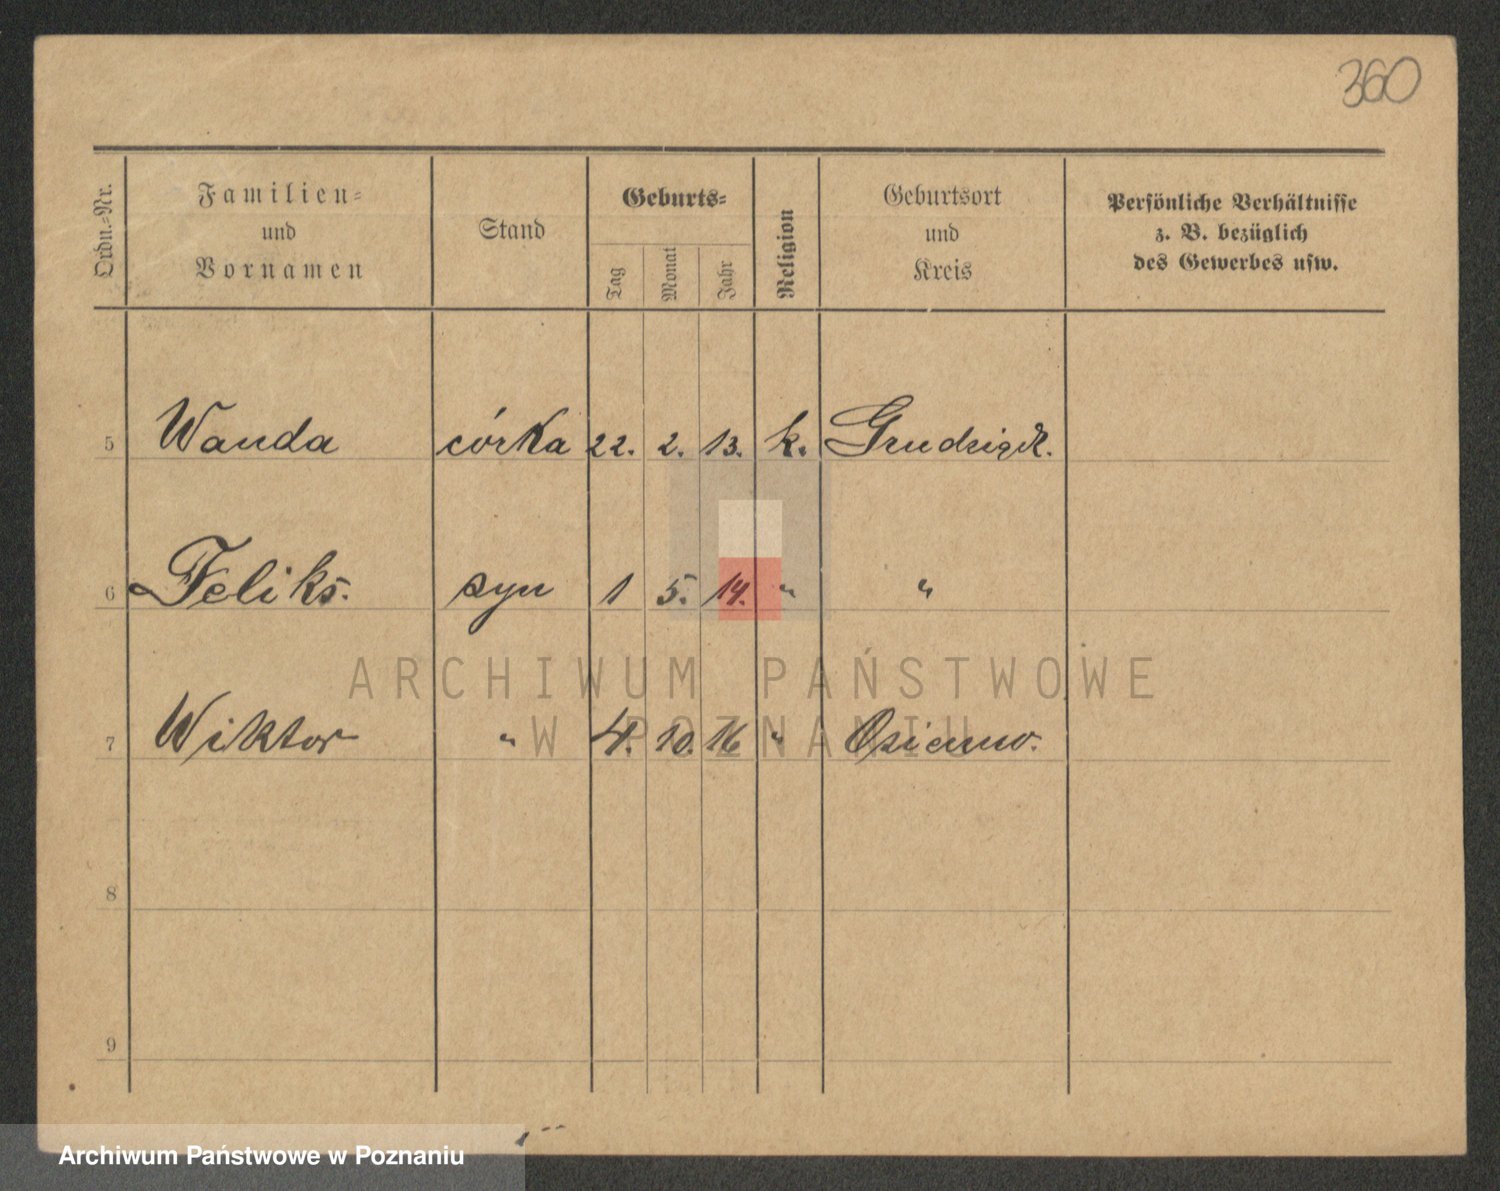 360
Ordn.-Nr.
Familien-
und
Vornamen
Stand
Geburts-
Tag
Monat
Jahr
Religion
Geburtsort
und
Kreis
Persönliche Verhältnisse
z. B. bezüglich
des Gewerbes usw.
5 Wanda córka 22. 2. 13. k.
6 Feliks. syn 1 5. 14. " "
7 Wiktor " 4. 10. 16 "
8
9
ARCHIWUM PAŃSTWOWE
W POZNANIU
Archiwum Państwowe w Poznaniu